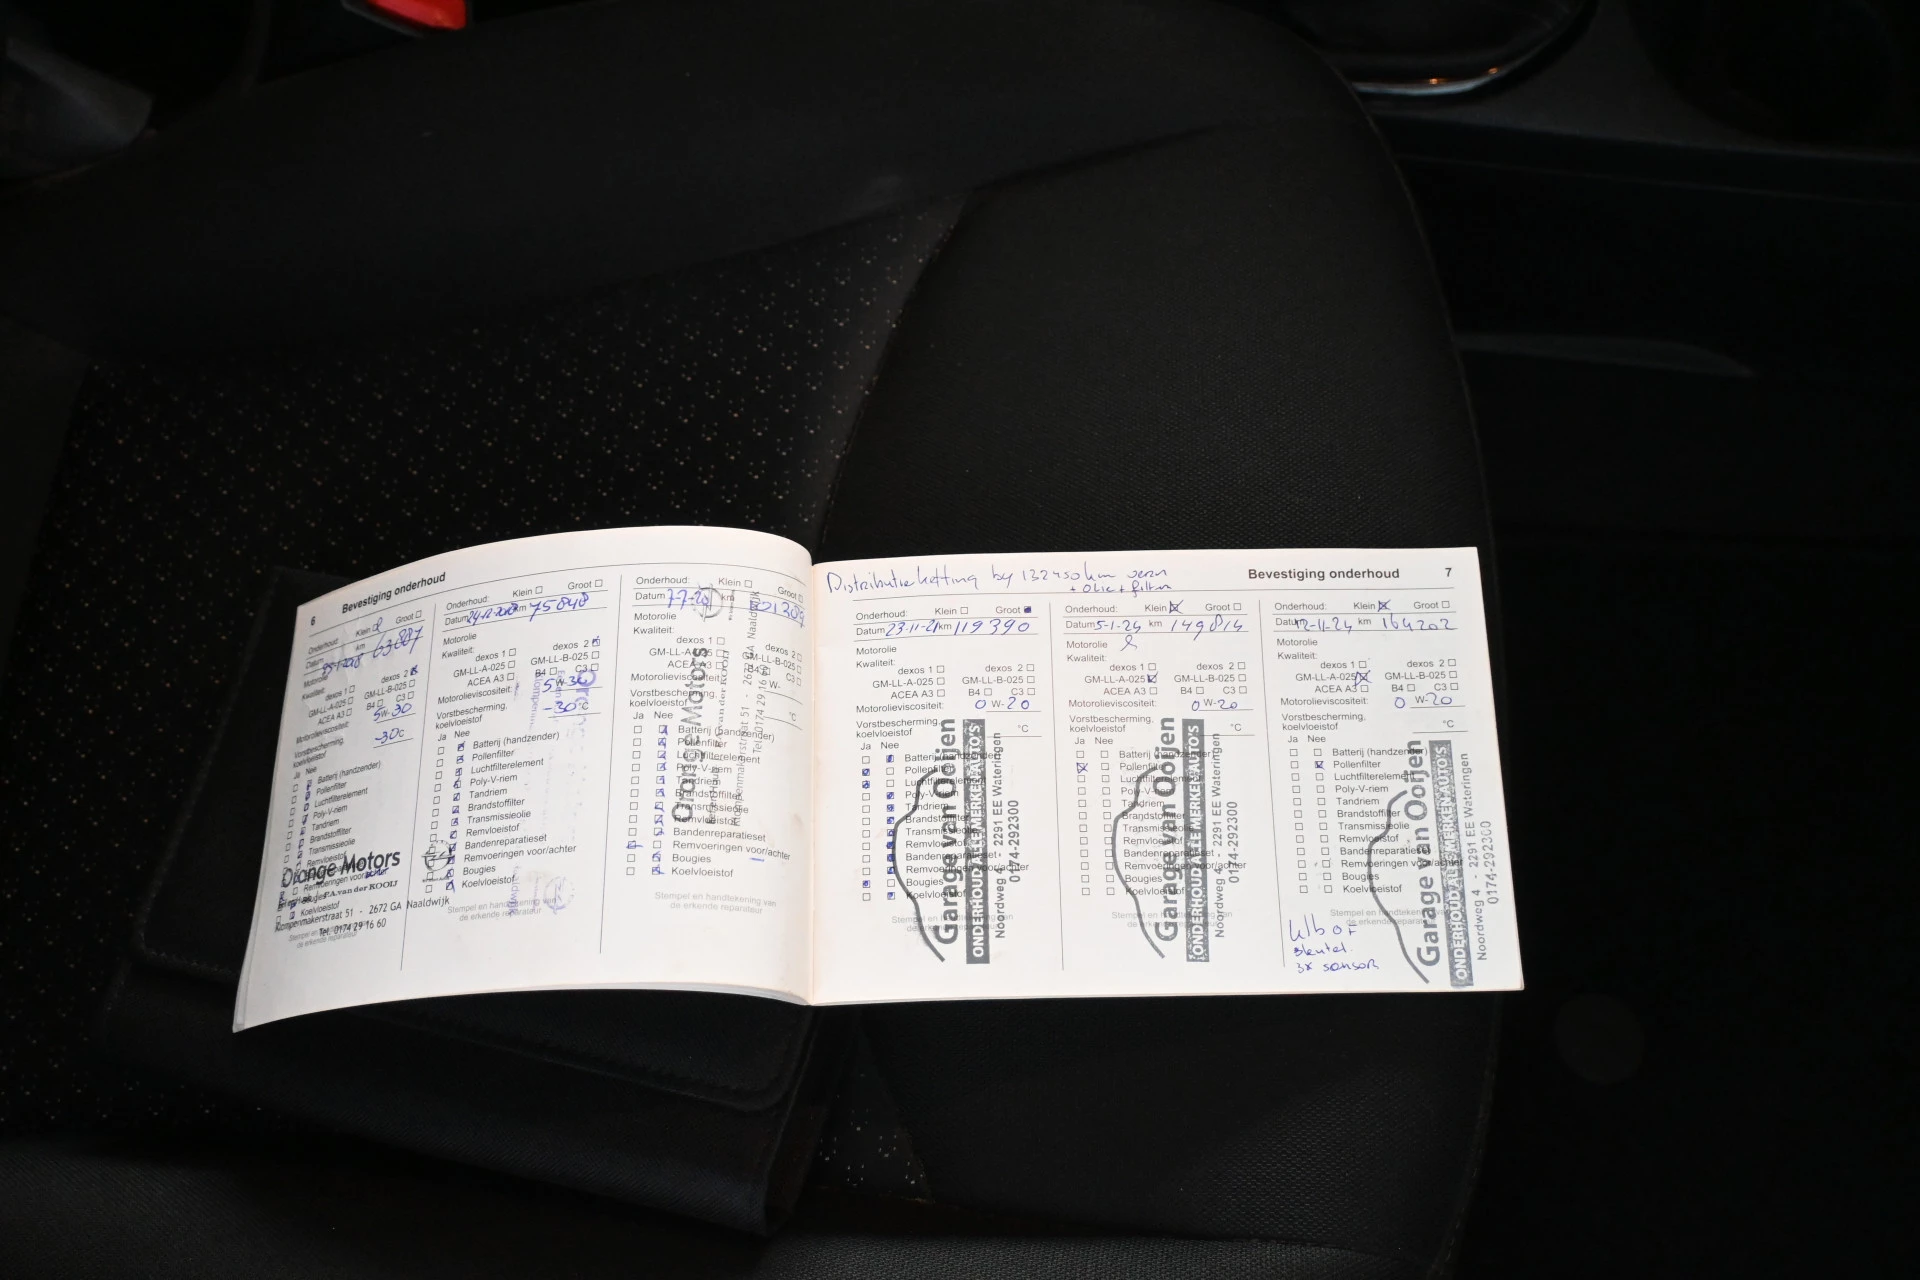 6
Bevestiging onderhoud
Onderhoud: Klein Groot
Datum km 63887
Motorolie
Kwaliteit: dexos 1 dexos 2
GM-LL-A-025 GM-LL-B-025
ACEA A3 B4 C3
Motorolieviscositeit: 5W-30
Vorstbescherming, koelvloeistof -30c
Ja Nee
Batterij (handzender)
Pollenfilter
Luchtfilterelement
Poly-V-riem
Tandriem
Brandstoffilter
Transmissieolie
Remvloeistof
Remvoeringen voor/achter
Bougies
Koelvloeistof
Orange Motors
P.A. van der KOOIJ
Klompenmakerstraat 51 - 2672 GA Naaldwijk
Tel. 0174 29 16 60
Onderhoud: Klein Groot
Datum km 75848
Motorolie
Kwaliteit: dexos 1 dexos 2
GM-LL-A-025 GM-LL-B-025
ACEA A3 B4 C3
Motorolieviscositeit: 5W-30
Vorstbescherming,
koelvloeistof -30°C
Ja Nee
Batterij (handzender)
Pollenfilter
Luchtfilterelement
Poly-V-riem
Tandriem
Brandstoffilter
Transmissieolie
Remvloeistof
Bandenreparatieset
Remvoeringen voor/achter
Bougies
Koelvloeistof
Stempel en handtekening van
de erkende reparateur
Onderhoud: Klein Groot
Datum 7-7-20 km
Motorolie
Kwaliteit:
dexos 1 dexos 2
GM-LL-A-025 GM-LL-B-025
ACEA A3 B4 C3
Motorolieviscositeit: W-
Vorstbescherming,
koelvloeistof °C
Ja Nee
Batterij (handzender)
Pollenfilter
Luchtfilterelement
Poly-V-riem
Tandriem
Brandstoffilter
Transmissieolie
Remvloeistof
Bandenreparatieset
Remvoeringen voor/achter
Bougies
Koelvloeistof
Stempel en handtekening van
de erkende reparateur
Orange Motors
P.A. van der KOOIJ
Klompenmakerstraat 51 - 2672 GA Naaldwijk
Tel. 0174 29 16 60
Distributieketting by 132450 km
+ Olie + filter
Bevestiging onderhoud 7
Onderhoud: Klein Groot
Datum 23-11-21 km 119390
Motorolie
Kwaliteit:
dexos 1 dexos 2
GM-LL-A-025 GM-LL-B-025
ACEA A3 B4 C3
Motorolieviscositeit: 0 W-20
Vorstbescherming,
koelvloeistof °C
Ja Nee
Batterij (handzender)
Pollenfilter
Luchtfilterelement
Poly-V-riem
Tandriem
Brandstoffilter
Transmissieolie
Remvloeistof
Bandenreparatieset
Remvoeringen voor/achter
Bougies
Koelvloeistof
Stempel en handtekening van
de erkende reparateur
Garage van Ooijen
ONDERHOUD ALLE MERKEN AUTO'S
Noordweg 4 - 2291 EE Wateringen
0174-292300
Onderhoud: Klein Groot
Datum 5-1-24 km 149814
Motorolie
Kwaliteit:
dexos 1 dexos 2
GM-LL-A-025 GM-LL-B-025
ACEA A3 B4 C3
Motorolieviscositeit: 0 W-20
Vorstbescherming,
koelvloeistof °C
Ja Nee
Batterij (handzender)
Pollenfilter
Luchtfilterelement
Poly-V-riem
Tandriem
Brandstoffilter
Transmissieolie
Remvloeistof
Bandenreparatieset
Remvoeringen voor/achter
Bougies
Koelvloeistof
Stempel en handtekening van
de erkende reparateur
Garage van Ooijen
ONDERHOUD ALLE MERKEN AUTO'S
Noordweg 4 - 2291 EE Wateringen
0174-292300
Onderhoud: Klein Groot
Datum 12-11-24 km 164202
Motorolie
Kwaliteit:
dexos 1 dexos 2
GM-LL-A-025 GM-LL-B-025
ACEA A3 B4 C3
Motorolieviscositeit: 0 W-20
Vorstbescherming,
koelvloeistof °C
Ja Nee
Batterij (handzender)
Pollenfilter
Luchtfilterelement
Poly-V-riem
Tandriem
Brandstoffilter
Transmissieolie
Remvloeistof
Bandenreparatieset
Remvoeringen voor/achter
Bougies
Koelvloeistof
Stempel en handtekening van
de erkende reparateur
sleutel.
3x sensor
Garage van Ooijen
ONDERHOUD ALLE MERKEN AUTO'S
Noordweg 4 - 2291 EE Wateringen
0174-292300